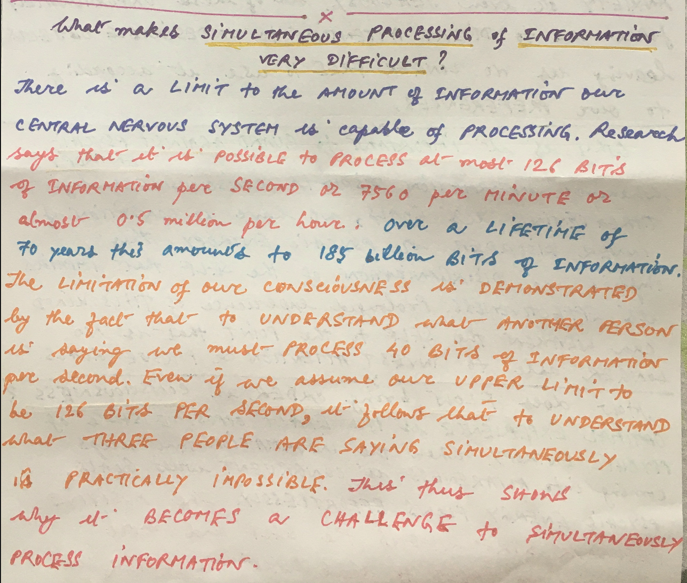 What makes SIMULTANEOUS PROCESSING of INFORMATION
VERY DIFFICULT?
There is a LIMIT to the AMOUNT of INFORMATION our
CENTRAL NERVOUS SYSTEM is capable of PROCESSING. Research
says that it is POSSIBLE to PROCESS at most 126 BITS
of INFORMATION per SECOND or 7560 per MINUTE or
almost 0.5 million per hour. Over a LIFETIME of
70 years this amounts to 185 billion BITS of INFORMATION.
The LIMITATION of our CONSCIOUSNESS is DEMONSTRATED
by the fact that to UNDERSTAND what ANOTHER PERSON
is saying we must PROCESS 40 BITS of INFORMATION
per second. Even if we assume our UPPER LIMIT to
be 126 BITS PER SECOND, it follows that to UNDERSTAND
what THREE PEOPLE ARE SAYING SIMULTANEOUSLY
is PRACTICALLY IMPOSSIBLE. This thus SHOWS
why it BECOMES a CHALLENGE to SIMULTANEOUSLY
PROCESS INFORMATION.